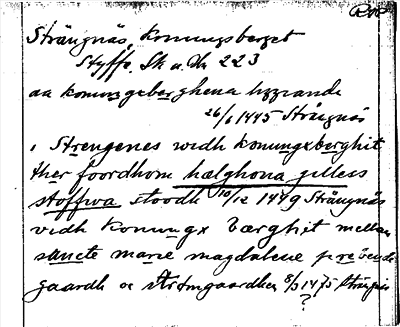 Strängnäs, Konungsberget
Styffe, Sk. u. Un 223
aa konungxberghena liggiande
26/6 1445 Strängnäs
i Strengenes widh konungxberghit
ther foordhom hælghona gilless
stoffwa stoodh 10/12 1449 Strängnäs
vidh konungx bærghit mellan
sancte marie magdalene prebende
gaardh oc strömgaardhen 8/3 1475 Strängnäs
?